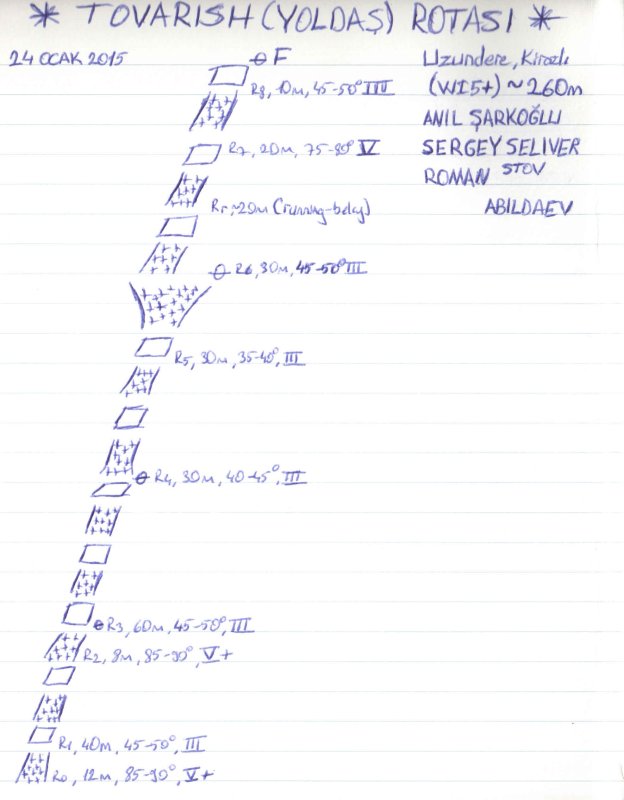 * TOVARISH (YOLDAŞ) ROTASI *
24 OCAK 2015
F
Uzundere, Kirazlı
(WI5+) ~260m
ANIL ŞARKOĞLU
SERGEY SELIVER
STOV
ROMAN
ABILDAEV
R8, 10m, 45-50° III
R7, 20m, 75-80° V
Rr, ~20m (running-belay)
R6, 30m, 45-50° III
R5, 30m, 35-40°, III
R4, 30m, 40-45°, III
R3, 60m, 45-50°, III
R2, 8m, 85-90°, V+
R1, 40m, 45-50°, III
R0, 12m, 85-90°, V+